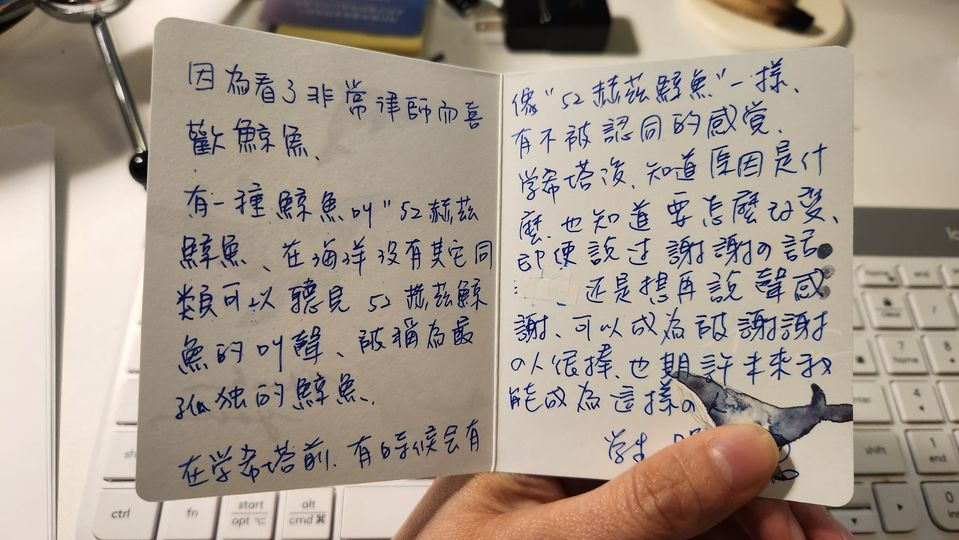 因為看了非常律師而喜
歡鯨魚、
有一種鯨魚叫"52赫茲
鯨魚、在海洋没有其它同
類可以聽見 52赫茲鯨
魚的叫聲、被稱為最
孤独的鯨魚.
在学希塔前、有的時候会有
像"52赫茲鯨魚"一樣、
有不被認同的感覚、
学希塔後、知道原因是什
麼、也知道要怎麼改変、
即使說过謝謝の話
还是想再說聲感
謝、可以成為被謝謝
の人很棒、也期許未來我
能成為這樣の人
学生
ctrl
fn
start
opt
alt
cmd ⌘
home
end
7
home
8
4
1
end
0
ins
shift